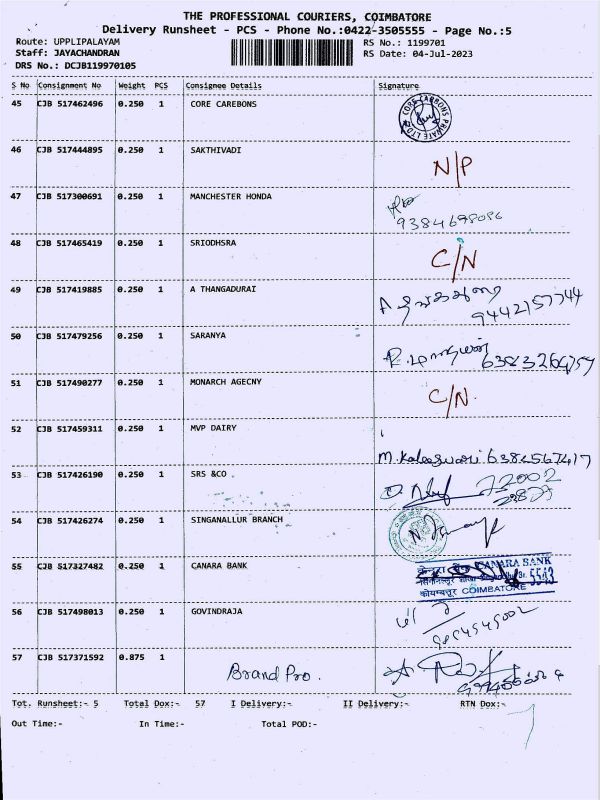 THE PROFESSIONAL COURIERS, COIMBATORE
Delivery Runsheet - PCS - Phone No.:0422-3505555 - Page No.:5
Route: UPPLIPALAYAM RS No.: 1199701
Staff: JAYACHANDRAN RS Date: 04-Jul-2023
DRS No.: DCJB119970105
S No Consignment No Weight PCS Consignee Details Signature
45 CJB 517462496 0.250 1 CORE CAREBONS
46 CJB 517444895 0.250 1 SAKTHIVADI N/P
47 CJB 517300691 0.250 1 MANCHESTER HONDA
9384698086
48 CJB 517465419 0.250 1 SRIODHSRA C/N
49 CJB 517419885 0.250 1 A THANGADURAI
9442157744
50 CJB 517479256 0.250 1 SARANYA
51 CJB 517490277 0.250 1 MONARCH AGECNY C/N.
52 CJB 517459311 0.250 1 MVP DAIRY
M.
53 CJB 517426190 0.250 1 SRS &CO
54 CJB 517426274 0.250 1 SINGANALLUR BRANCH
55 CJB 517327482 0.250 1 CANARA BANK CANARA BANK
5543
कोयम्बत्तूर COIMBATORE
56 CJB 517498013 0.250 1 GOVINDRAJA
57 CJB 517371592 0.875 1 Brand Pro.
Tot. Runsheet:- 5 Total Dox:- 57 I Delivery:- II Delivery:- RTN Dox:-
Out Time:- In Time:- Total POD:-